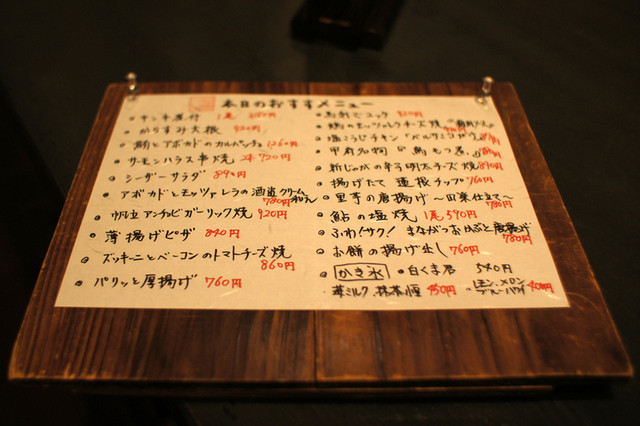 本日のおすすメニュー
キンキ煮付 1尾
からすみ大根 920円
鮪とアボカドのカルパッチョ 1260円
サーモンハラス串焼 2本 920円
シーザーサラダ 890円
アボカドとモッツァレラの酒盗クリーム和え 780円
帆立アンチョビガーリック焼 920円
薄揚げピザ 840円
ズッキーニとベーコンのトマトチーズ焼 860円
パリッと厚揚げ 760円
馬刺しユッケ 920円
鶏のモッツァレラチーズ焼
塩こうじチキン
甲府名物 馬もつ煮 780円
新じゃがの辛子明太チーズ焼 890円
揚げたて 蓮根チップ 760円
里芋の唐揚げ 〜田楽仕立て〜 780円
鮎の塩焼 1尾 590円
ふわ!サク! まながつおはぶと唐揚げ 780円
お餅の揚げ出し 760円
かき氷
白くま君 540円
苺ミルク 抹茶 450円
レモン、メロン ブルーハワイ 400円